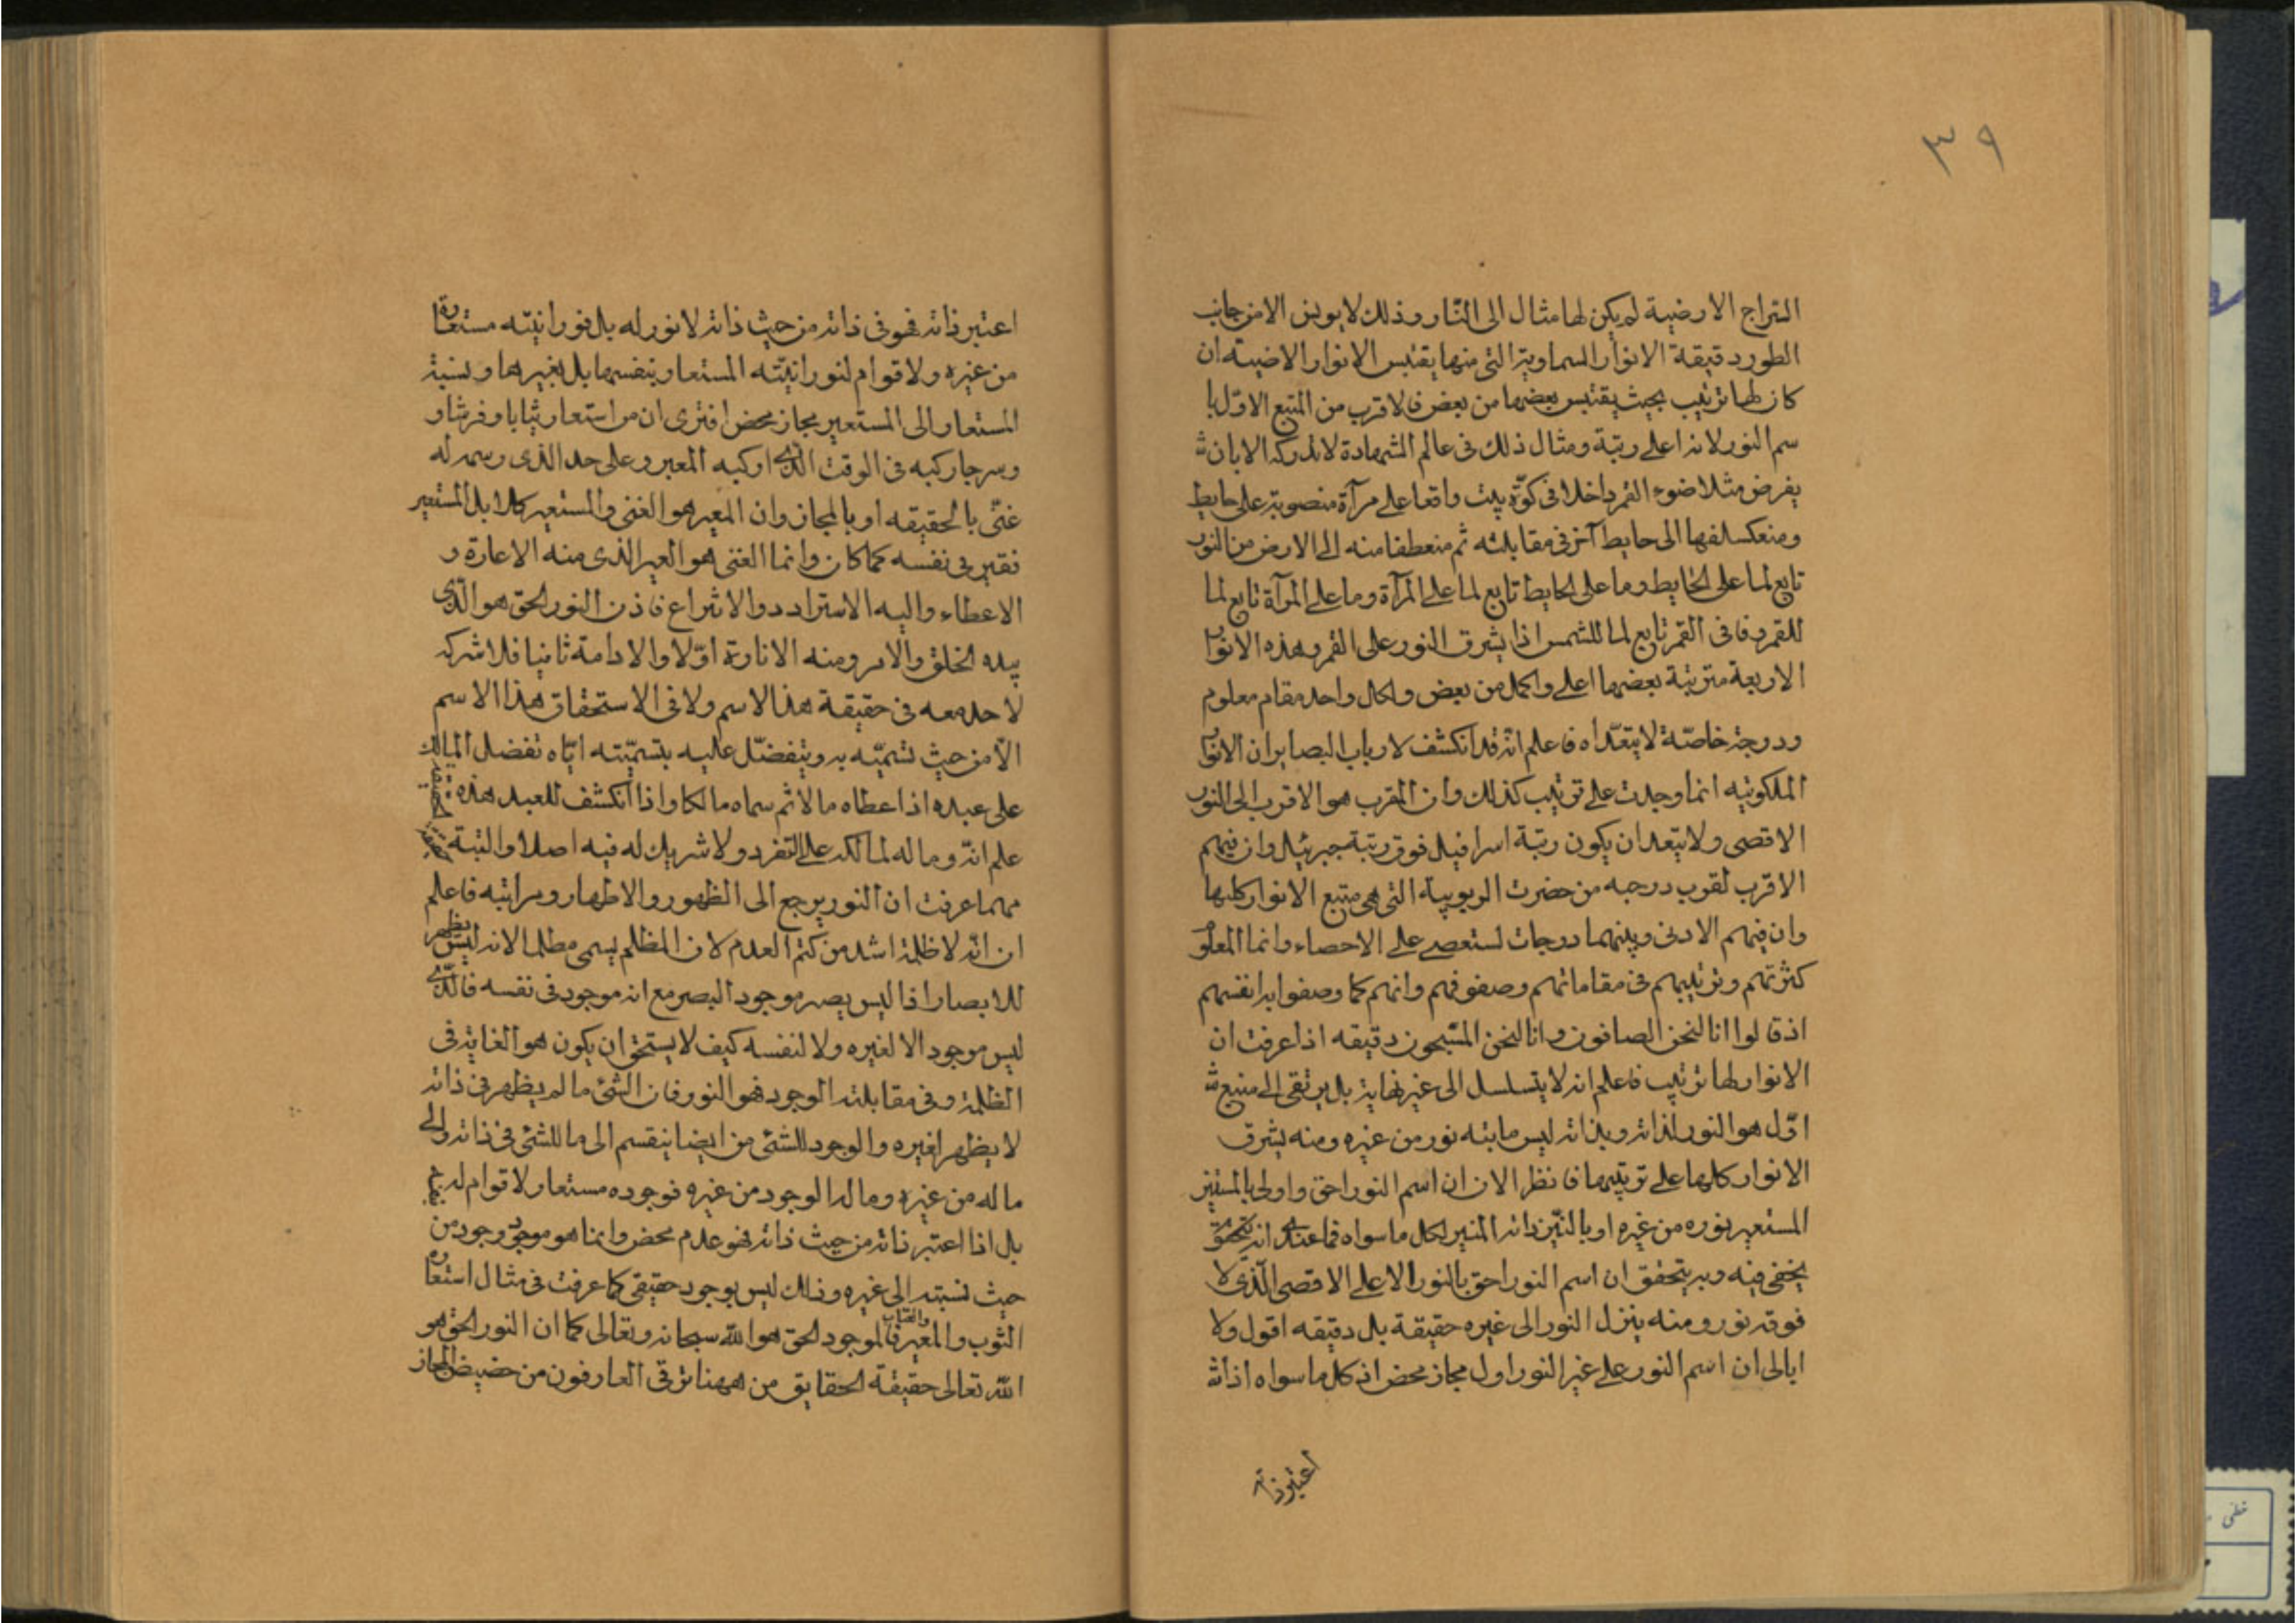 ٣٩
السراج الارضية لم يكن لها مثال الى النار وذلك لا يونس الا من جانب
الطور دقيقة الانوار السماوية التى منها يقتبس الانوار الارضيته ان
كان لها ترتيب بحيث يقتبس بعضها من بعض فالاقرب من المنبع الاوّل با
سم النور لانه اعلى رتبة ومثال ذلك فى عالم الشهادة لا تدركه الا بان
يفرض مثلا ضوء القمر داخلا فى كوّة بيت واقعا على مرآة منصوبة على حايط
ومنعكسا منها الى حايط آخر فى مقابلته ثم منعطفا منه الى الارض من النور
تابع لما على الحايط وما على الحايط تابع لما على المرآة وما على المرآة تابع لما
للقمر وفا فى القمر تابع لما للشمس اذا يشرق النور على القمر وهذه الانوار
الاربعة مترتبة بعضها اعلى واكمل من بعض ولكل واحد مقام معلوم
ودرجة خاصّة لا يتعدّاه فاعلم انّه قد انكشف لارباب البصاير ان الانوار
الملكوتيه انما وجدت على ترتيب كذلك وان المقرب هو الاقرب الى النور
الاقصى ولا يتعد ان يكون رتبة اسرافيل فوق رتبة جبرئيل وان فيهم
الاقرب لقرب درجه من حضرت الربوبية التى هى منبع الانوار كلها
وان فيهم الادنى وبينهما درجات تستعصى على الاحصاء وانما المعلوم
كثرتهم وترتيبهم فى مقاماتهم وصفوفهم وانهم كما وصفوا به انفسهم
اذ قالوا انا لنحن الصافون وانا لنحن المسبحون دقيقه اذا عرفت ان
الانوار لها ترتيب فاعلم انه لا يتسلسل الى غير نهاية بل يرتقى الى منبع
اوّل هو النور لذاته وبذاته ليس ما بته نور من غيره ومنه يشرق
الانوار كلها على ترتيبها فانظر الان ان اسم النور احق واولى بالمستنير
المستعير نوره من غيره او بالنيّر ذاته المنير لكل ما سواه فما عندى انه
يخفى فيه وبه يتحقق ان اسم النور احق بالنور الاعلى الاقصى الّذى لا
فوقه نور ومنه ينزل النور الى غيره حقيقة بل دقيقه اقول ولا
ابالى ان اسم النور على غير النور اول مجاز محض اذ كل ما سواه اذا
اعتبر ذاته
اعتبر ذاته فهو فى ذاته من حيث ذاته لا نور له بل نورانيّته مستعارة
من غيره ولا قوام لنورانيّته المستعار بنفسها بل بغيرها ونسبة
المستعار الى المستعير مجاز محض افترى ان من استعار ثيابا وفرشا و
وسرجا ركبه فى الوقت الذى اركبه المعير وعلى حد الذى رسمه له
غنّى بالحقيقه او بالمجاز وان المعير هو الغنى والمستعير كلا بل المستعير
فقير فى نفسه كما كان وانما الغنى هو العير الذى منه الاعارة و
الاعطاء واليه الاسترادد والانتزاع فاذن النور الحق هو الّذى
بيده الخلق والامر ومنه الانارة اوّلا والادامة ثانيا فلا شركه
لاحد معه فى حقيقة هذا الاسم ولا فى الاستحقاق هذا الاسم
الّا من حيث تسميّه به ويتفضّل عليه بتسميّته ايّاه تفضل المالك
على عبده اذا اعطاه مالا ثم سماه مالكا واذا انكشف للعبد هذه الحقيقة
علم انّه وماله لمالكه على التفرد ولا شريك له فيه اصلا والبتة حقيقة
مهما عرفت ان النور يرجع الى الظهور والاظهار ومراتبه فاعلم
ان انّه لا ظلمة اشد من كتم العدم لان المظلم يسمى مظلما لانه ليس يظهر
للابصار اذا ليس يصر موجود البصر مع انه موجود فى نفسه فالّذى
ليس موجود الا لغيره ولا لنفسه كيف لا يستحق ان يكون هو الغاية فى
الظلمة وفى مقابلته الوجود فهو النور فان الشئ ما لم يظهر فى ذاته
لا يظهر لغيره والوجود للشئ من ايضا ينقسم الى ما للشئ فى ذاته والى
ما له من غيره وما له الوجود من غيره فوجوده مستعار لا قوام له بنفسه
بل اذا اعتبر ذاته من حيث ذاته فهو عدم محض وانما هو موجود وجود من
حيث نسبته الى غيره وذلك ليس بوجود حقيقى كما عرفت فى مثال استعارة
الثوب والمعير فالموجود الحق هو الله سبحانه وتعالى كما ان النور الحق هو
الله تعالى حقيقة الحقايق من ههنا ترقى العارفون من حضيض المجاز
خطى